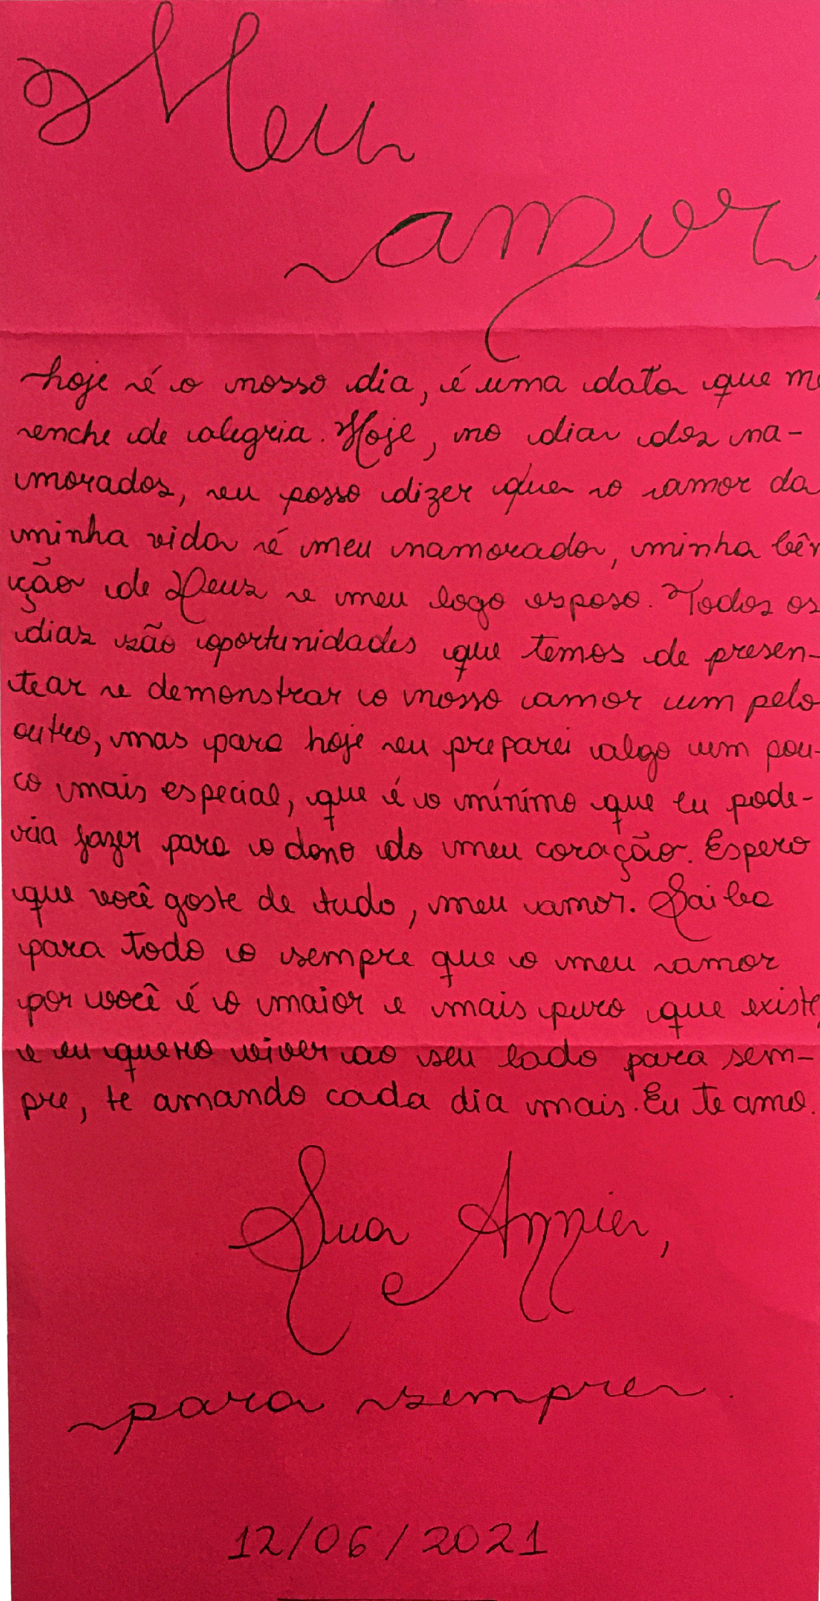 Meu
amor,
hoje é o nosso dia, é uma data que me
enche de alegria. Hoje, no dia dos na-
morados, eu posso dizer que o amor da
minha vida é meu namorado, minha bên
ção de Deus e meu logo esposo. Todos os
dias são oportunidades que temos de presen-
tear e demonstrar o nosso amor um pelo
outro, mas para hoje eu preparei algo um pou-
co mais especial, que é o mínimo que eu pode-
ria fazer para o dono do meu coração. Espero
que você goste de tudo, meu amor. Saiba
para todo o sempre que o meu amor
por você é o maior e mais puro que existe,
e eu quero viver ao seu lado para sem-
pre, te amando cada dia mais. Eu te amo.
Sua Annie,
para sempre.
12/06/2021